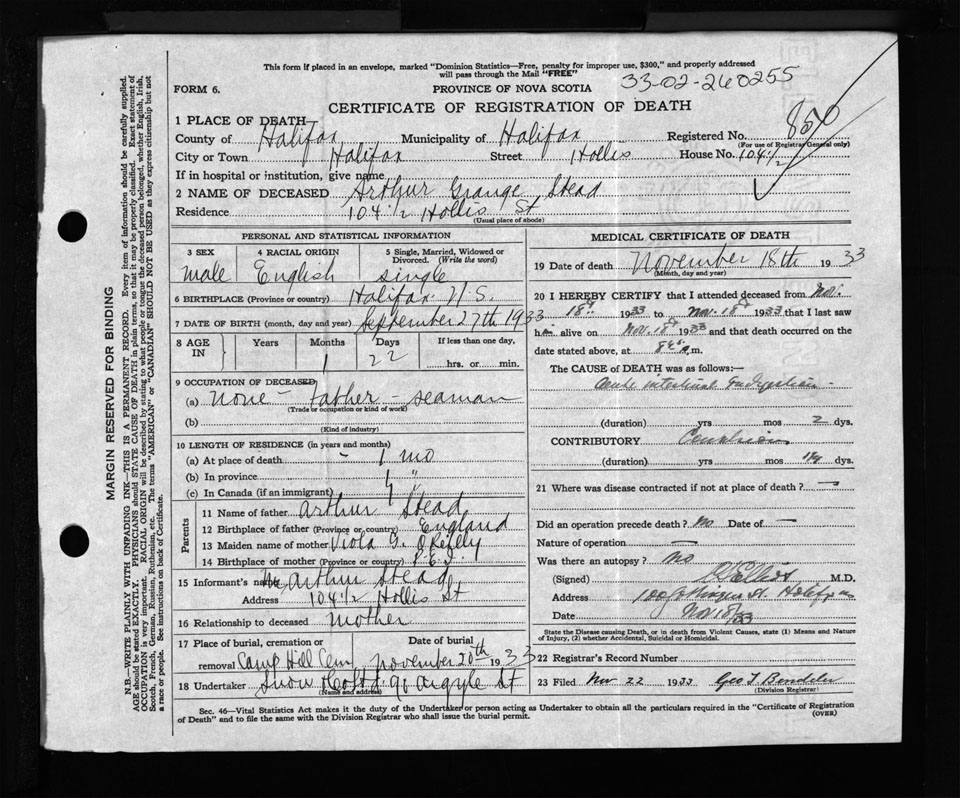 This form if placed in an envelope, marked "Dominion Statistics—Free, penalty for improper use, $300," and properly addressed
will pass through the Mail "FREE"
33-02-260255
FORM 6.
PROVINCE OF NOVA SCOTIA
CERTIFICATE OF REGISTRATION OF DEATH
1 PLACE OF DEATH
County of Halifax Municipality of Halifax Registered No. 850
(For use of Registrar General only)
City or Town Halifax Street Hollis House No. 104½
If in hospital or institution, give name
2 NAME OF DECEASED Arthur Grange Stead
Residence 104½ Hollis St
(Usual place of abode)
PERSONAL AND STATISTICAL INFORMATION
3 SEX 4 RACIAL ORIGIN 5 Single, Married, Widowed or Divorced. (Write the word)
male English single
6 BIRTHPLACE (Province or country) Halifax N.S.
7 DATE OF BIRTH (month, day and year) September 27th 1933
8 AGE IN Years Months Days If less than one day,
1 22 hrs. or min.
9 OCCUPATION OF DECEASED
(a) None - father - seaman
(Trade or occupation or kind of work)
(b)
(Kind of industry)
10 LENGTH OF RESIDENCE (in years and months)
(a) At place of death - 1 mo
(b) In province "
(c) In Canada (if an immigrant)
Parents
11 Name of father Arthur Stead
12 Birthplace of father (Province or country) England
13 Maiden name of mother Viola G. O'Reilly
14 Birthplace of mother (Province or country) P.E.I.
15 Informant's name Mrs Arthur Stead
Address 104½ Hollis St
16 Relationship to deceased mother
17 Place of burial, cremation or removal Camp Hill Cem Date of burial November 20th 1933
18 Undertaker Snow & Co Ltd. 90 Argyle St
(Name and address)
MEDICAL CERTIFICATE OF DEATH
19 Date of death November 18th 1933
(Month, day and year)
20 I HEREBY CERTIFY that I attended deceased from Nov.
18th 1933 to Nov. 18th 1933 that I last saw
him alive on Nov. 18th 1933 and that death occurred on the
date stated above, at m.
The CAUSE of DEATH was as follows:—
Acute intestinal Indigestion -
(duration) yrs mos 2 dys.
CONTRIBUTORY
(duration) yrs mos dys.
21 Where was disease contracted if not at place of death? —
Did an operation precede death? No Date of —
Nature of operation —
Was there an autopsy? No
(Signed) M.D.
Address
Date Nov 18/33
State the Disease causing Death, or in death from Violent Causes, state (1) Means and Nature
of Injury, (2) whether Accidental, Suicidal or Homicidal.
22 Registrar's Record Number
23 Filed Nov 22 1933
(Division Registrar)
Sec. 46—Vital Statistics Act makes it the duty of the Undertaker or person acting as Undertaker to obtain all the particulars required in the "Certificate of Registration
of Death" and to file the same with the Division Registrar who shall issue the burial permit.
(OVER)
MARGIN RESERVED FOR BINDING
N.B.—WRITE PLAINLY WITH UNFADING INK—THIS IS A PERMANENT RECORD. Every item of information should be carefully supplied.
AGE should be stated EXACTLY. PHYSICIANS should STATE CAUSE OF DEATH in plain terms, so that it may be properly classified. Exact statement of
OCCUPATION is very important. RACIAL ORIGIN will be described by stating to what people or tongue the deceased person belonged, whether English, Irish,
Scotch, French, German, Russian, Ruthenian, etc. The terms "AMERICAN" or "CANADIAN" SHOULD NOT BE USED as they express citizenship but not
a race or people. See instructions on back of Certificate.